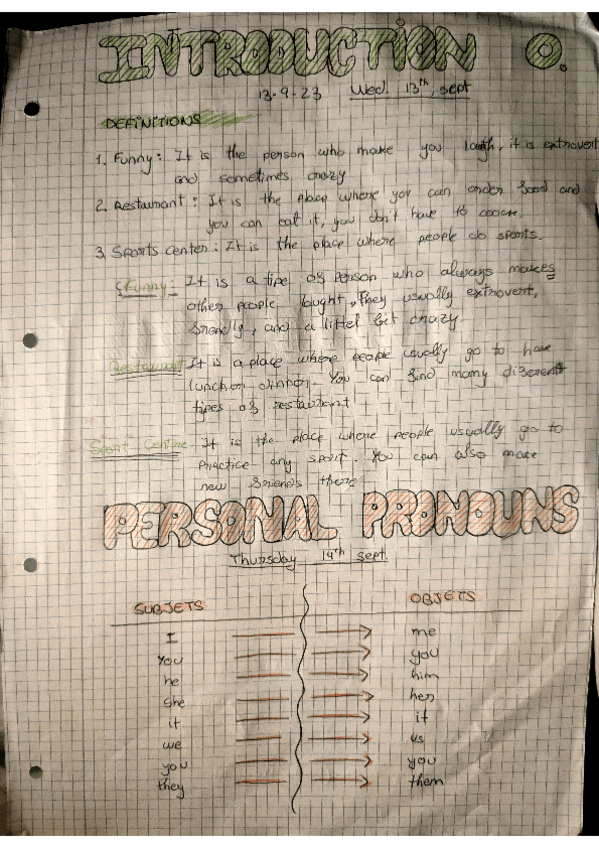 INTRODUCTION 0.
13-9-23 Wed. 13th, sept
DEFINITIONS
1. Funny: It is the person who make you laugh, it is extrovert
and sometimes crazy
2. Restaurant: It is the place where you can order food and
you can eat it, you don't have to coock.
3. Sports center: It is the place where people do sports.
Funny: It is a tipe of person who always makes
other people laught, They usually extrovert,
friendly, and a littel bit crazy
Restaurant It is a place where people usually go to have
lunch or dinner. You can find many diferent
tipes of restaurant
Sport Centre It is the place where people usually go to
practice any sport. You can also make
new friends there
PERSONAL PRONOUNS
Thursday 14th sept.
SUBJETS OBJETS
I me
You you
he him
she her
it it
we us
you you
they them